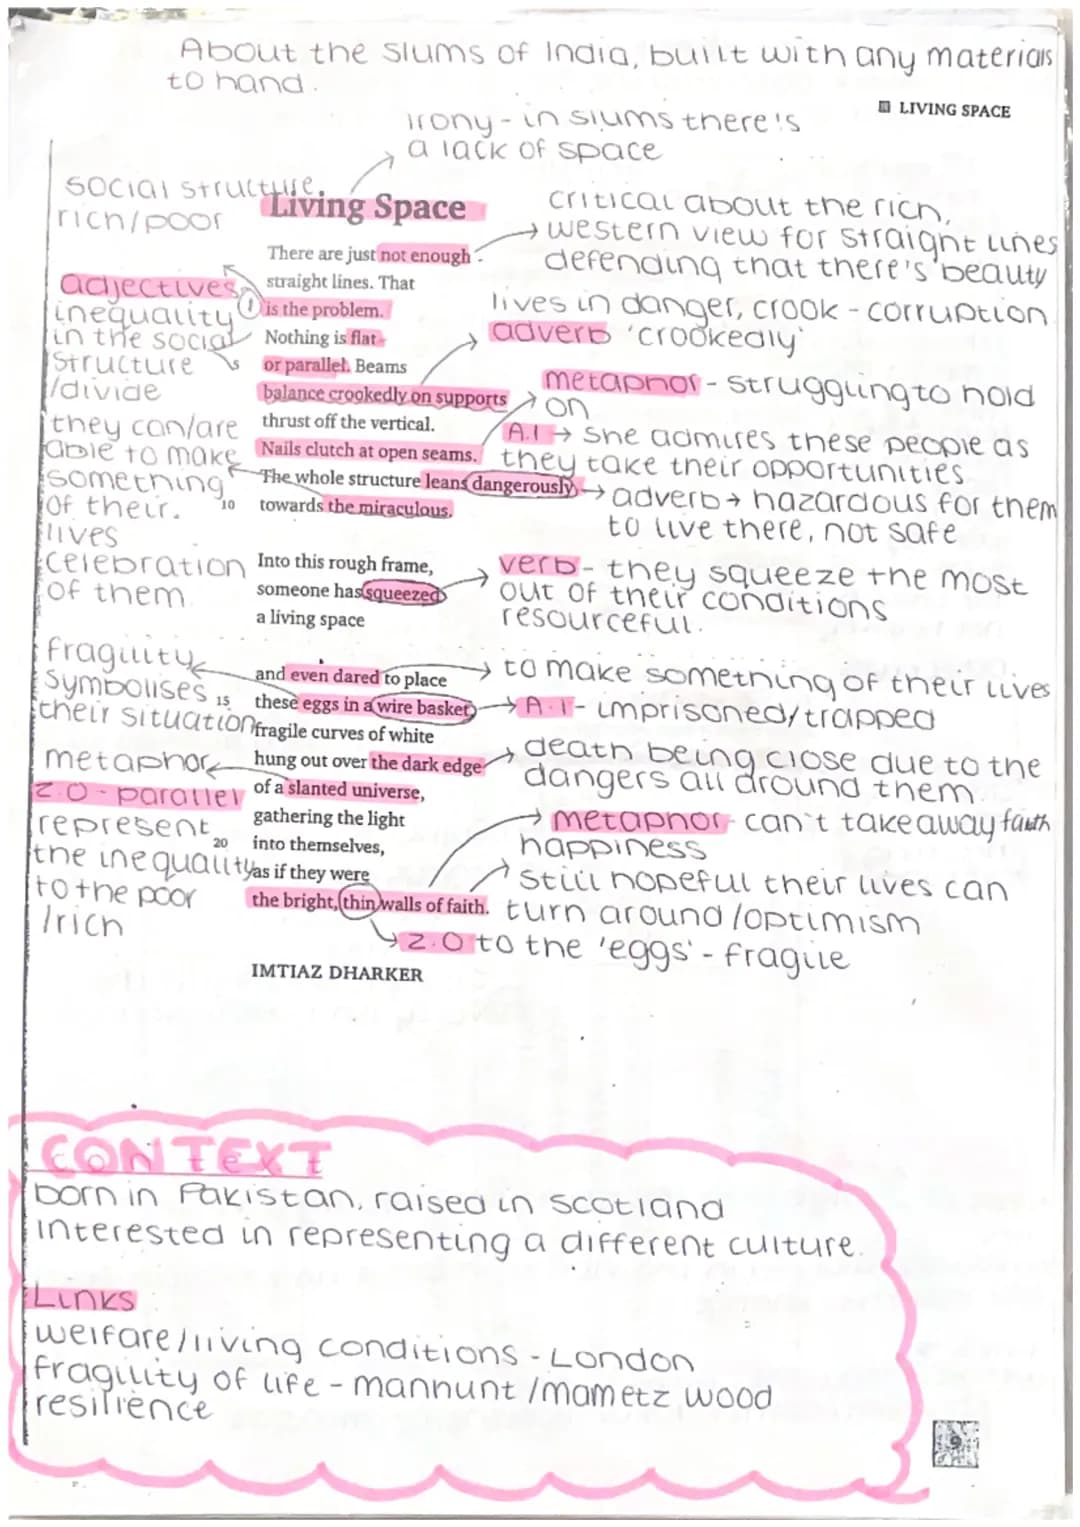 About the slums of India, built with any materials
to hand.
LIVING SPACE
irony - in slums there's
a lack of space
social structure.
rich/poor
Living Space
critical about the rich,
western view for straight lines
defending that there's beauty
There are just not enough
straight lines. That
is the problem.
Nothing is flat
or parallel. Beams
balance crookedly on supports
thrust off the vertical.
Nails clutch at open seams.
The whole structure leans dangerously
10 towards the miraculous.
adjectives
inequality
in the social
structure
/divide
they can/are
able to make
something
of their.
lives
celebration
of them
lives in danger, crook - corruption
adverb 'crookedly'
metaphor - struggling to hold
on
A.I → She admires these people as
they take their opportunities
adverb → hazardous for them
to live there, not safe
Into this rough frame,
someone has squeezed
a living space
verb - they squeeze the most
out of their conditions
resourceful.
and even dared to place
15 these eggs in a wire basket,
fragile curves of white
hung out over the dark edge
of a slanted universe,
gathering the light
20 into themselves,
as if they were
the bright, thin walls of faith.
fragility
symbolises
their situation
metaphor
Z.O - parallel
represent
the inequality
to the poor
/rich
to make something of their lives
A.I - imprisoned/trapped
death being close due to the
dangers all around them.
metaphor - can't take away faith
happiness
still hopeful their lives can
turn around/optimism
Z.O to the 'eggs' - fragile
IMTIAZ DHARKER
CONTEXT
born in Pakistan, raised in Scotland
interested in representing a different culture.
Links
welfare/living conditions - London
fragility of life - mannunt/mametz wood
resilience
9